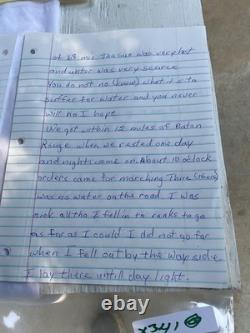 of 25 mi. The sun was very hot
and water was very scarce
You do not no (know) what it is to
suffer for water and you never
will no I hope
We got within 12 miles of Baton
Rouge when we rested one day
and night came on. About 10 o'clock
orders came for marching. Thire (there)
was no water on the road. I was
sick altho I fell in the ranks to go
as far as I could I did not go far
when I fell out by the way side
I lay there untill day light.
X341